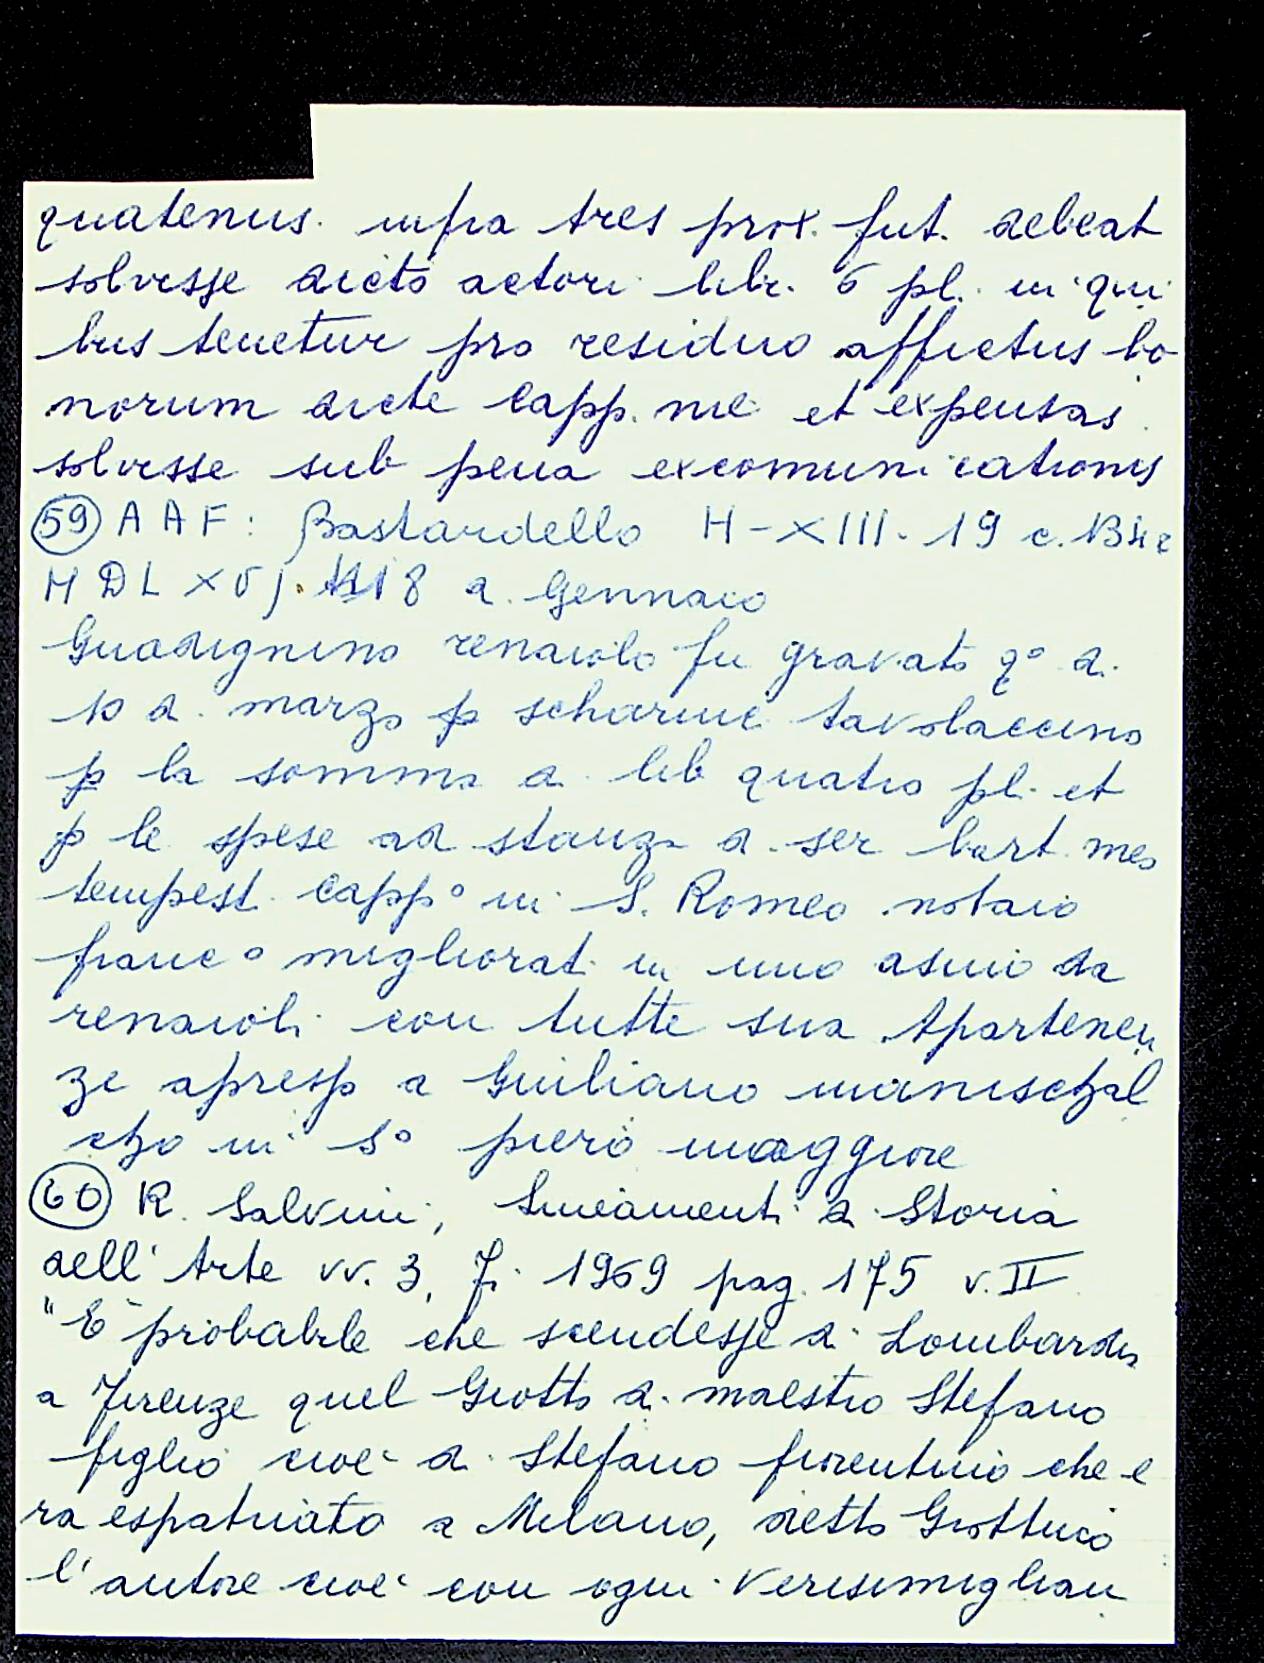 quatenus infra tres prox. fut. debeat
solvisse dicto actori libr. 6 pl. in qui
bus tenetur pro residuo affictus bo
norum dicte Capp. nie et expensas
solvisse sub pena excomunicationis
(59) A A F: Bastardello H-XIII. 19 c.
MDLXVj. 18 di Gennaio
Guadignino renaiolo fu gravato qº di
10 di marzo p scharine tavolaccino
p la somma di lib quatro pl. et
p le spese ad stanza di ser bart. meo
tempest. Cappº in S. Romeo notaio
francº migliorati in uno asino da
renaioli con tutte sua Apartenen
ze apresso a Giuliano manischal
cho in sº piero maggiore
(60) R. Salvini, Lineamenti di Storia
dell'Arte vv. 3, Fi. 1969 pag. 175 v. II
"E' probabile che scendesse di Lombardia
a Firenze quel Giotto di maestro Stefano
figlio cioè di Stefano fiorentino che e
ra espatriato a Milano, detto Giottino
l'autore cioè con ogni verisimiglian